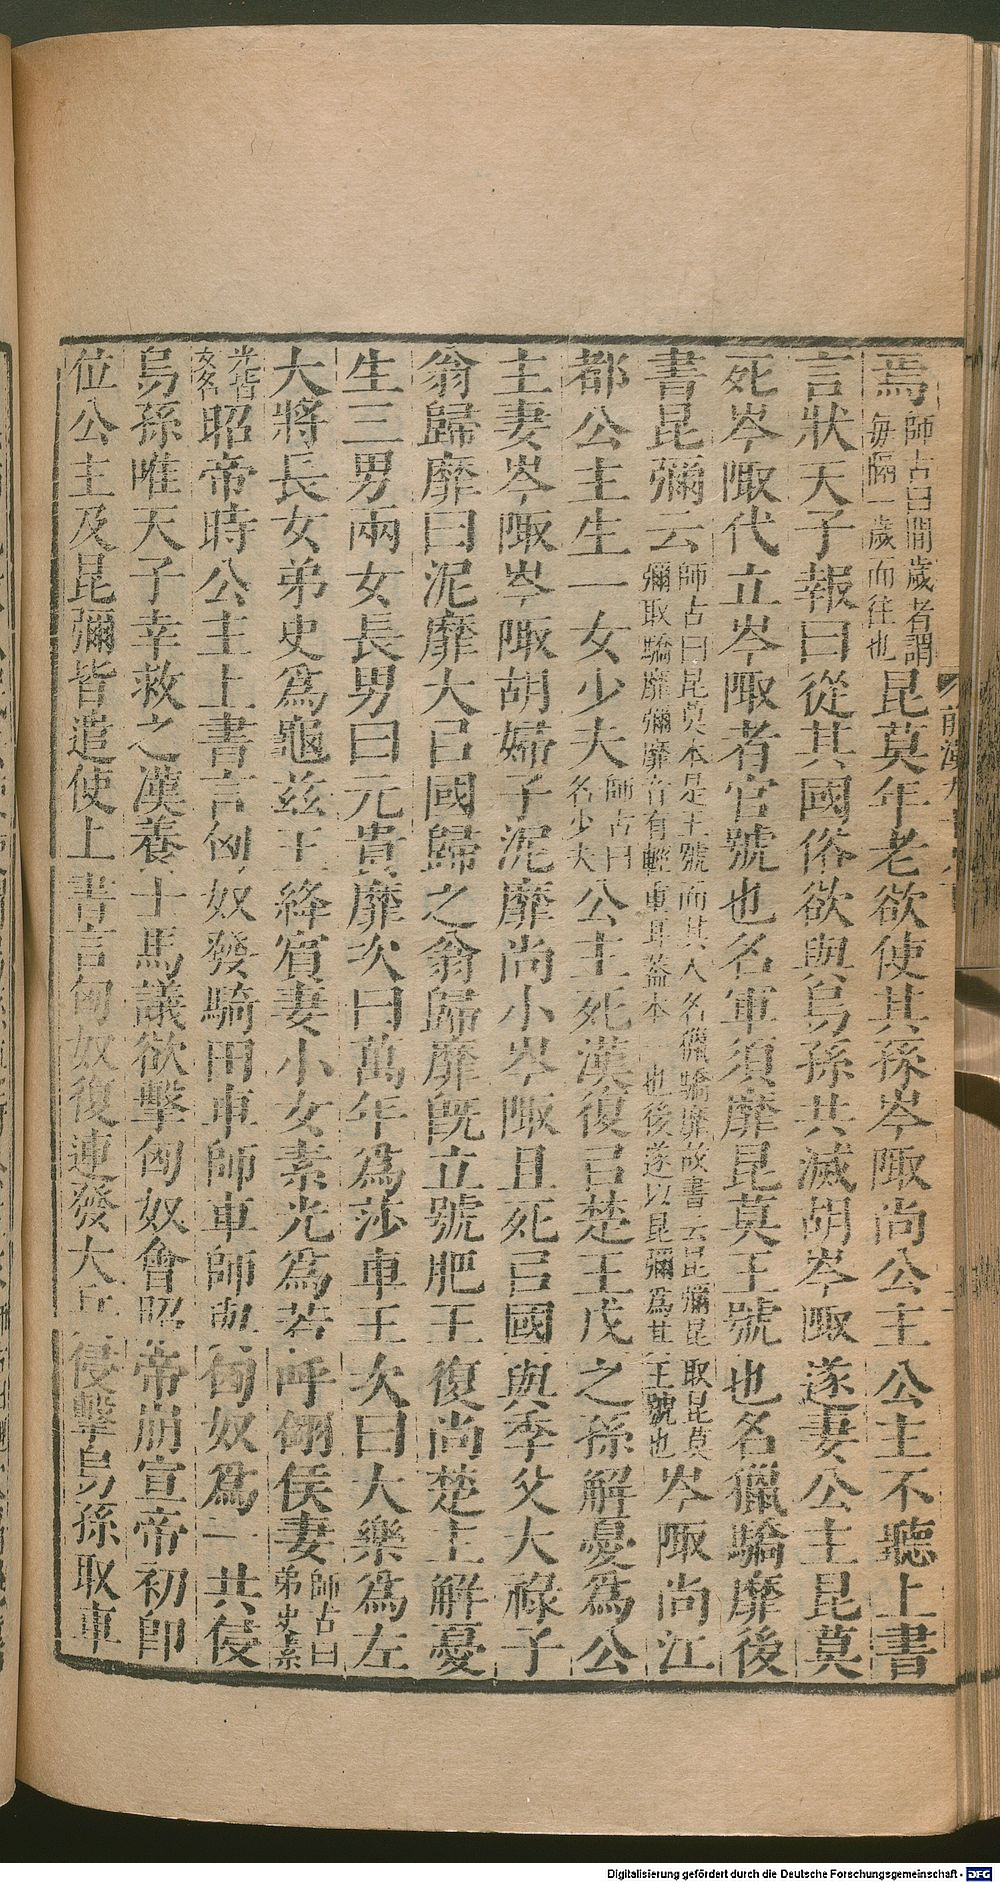 焉師古曰間歲者謂每隔一歲而往也昆莫年老欲使其孫岑陬尚公主公主不聽上書
言狀天子報曰從其國俗欲與烏孫共滅胡岑陬遂妻公主昆莫
死岑陬代立岑陬者官號也名軍須靡昆莫王號也名獵驕靡後
書昆彌云師古曰昆莫本是王號而其人名獵驕靡故書云昆彌昆取昆莫彌取驕靡彌靡音有輕重耳蓋本一也後遂以昆彌為其王號也岑陬尚江
都公主生一女少夫師古曰名少夫公主死漢復以楚王戊之孫解憂為公
主妻岑陬岑陬胡婦子泥靡尚小岑陬且死以國與季父大祿子
翁歸靡曰泥靡大以國歸之翁歸靡既立號肥王復尚楚主解憂
生三男兩女長男曰元貴靡次曰萬年為莎車王次曰大樂為左
大將長女弟史為龜茲王絳賓妻小女素光為若呼翎侯妻師古曰弟史素
光皆女名昭帝時公主上書言匈奴發騎田車師車師與匈奴為一共侵
烏孫唯天子幸救之漢養士馬議欲擊匈奴會昭帝崩宣帝初即
位公主及昆彌皆遣使上書言匈奴復連發大兵侵擊烏孫取車
前漢九十六下
Digitalisierung gefördert durch die Deutsche Forschungsgemeinschaft - DFG